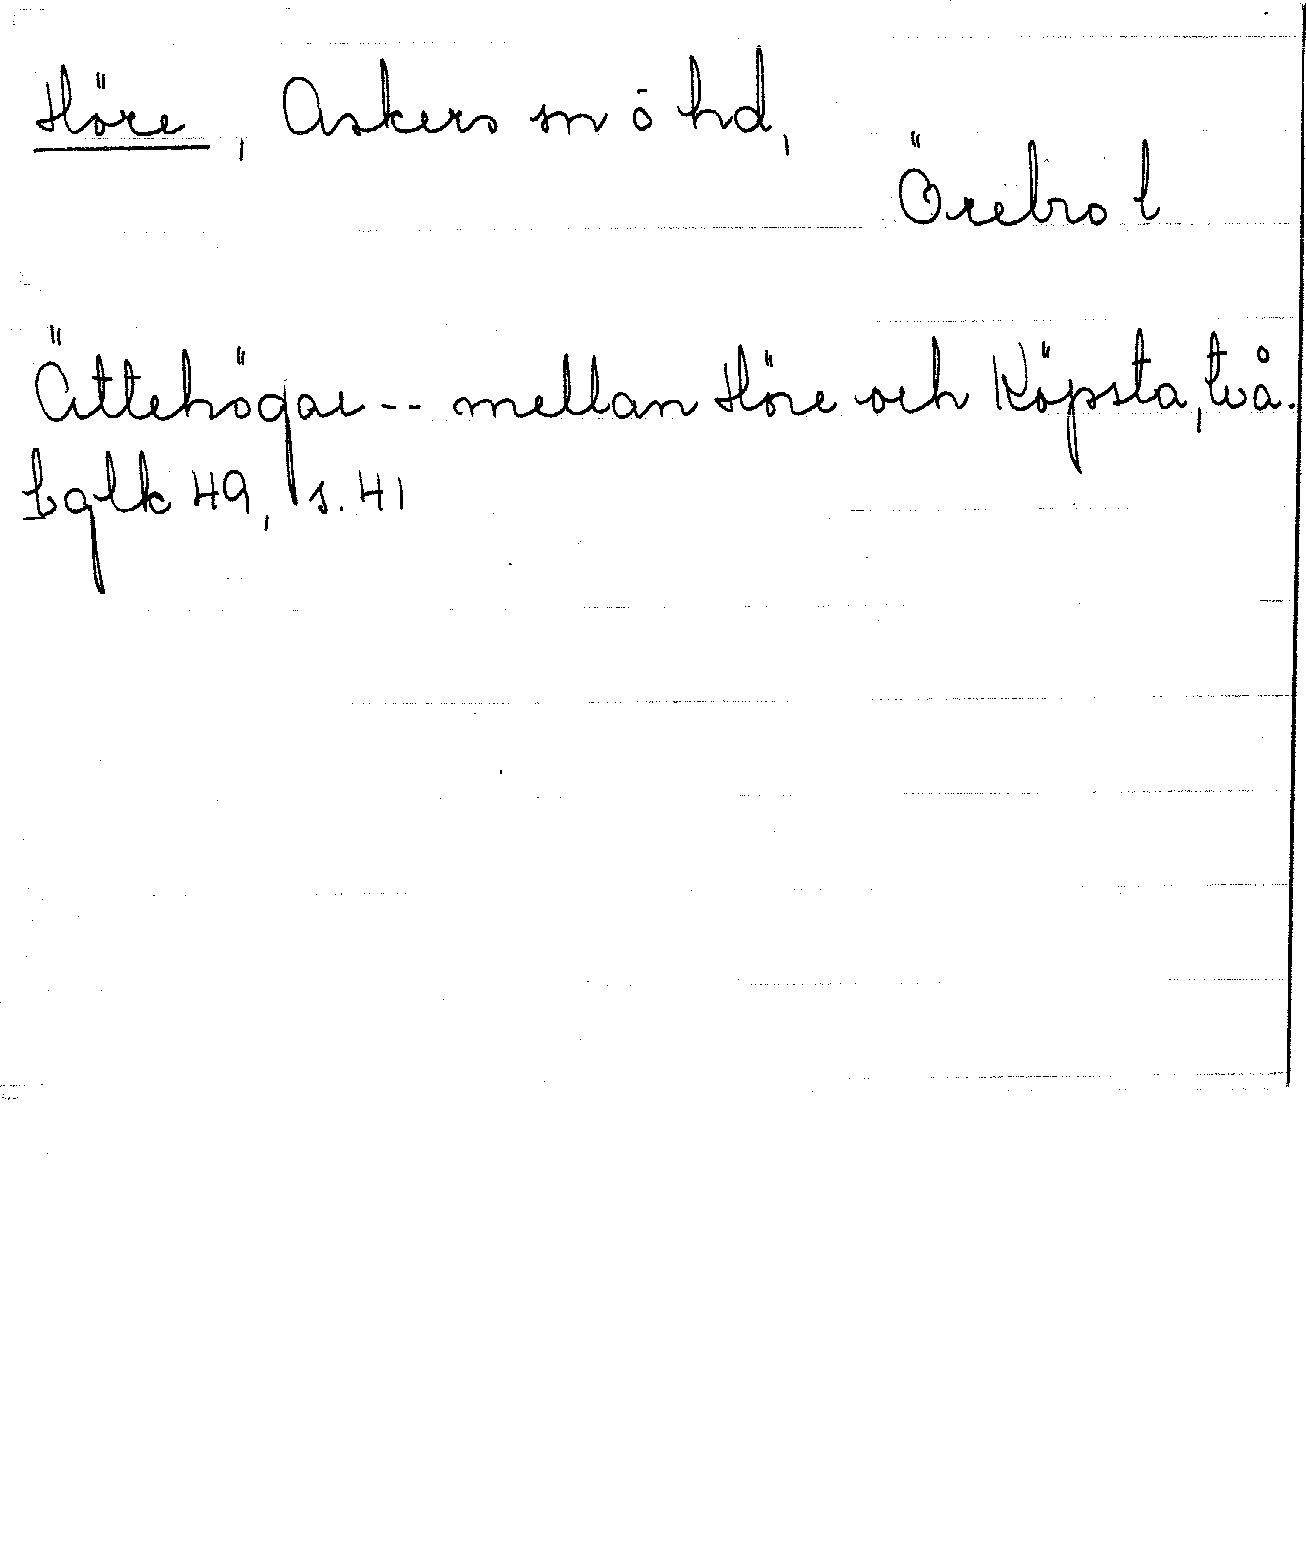 Höre, Askers sn o hd,
Örebro l
Ättehögar -- mellan Höre och Köpsta, två.
Lglk 49, s. 41